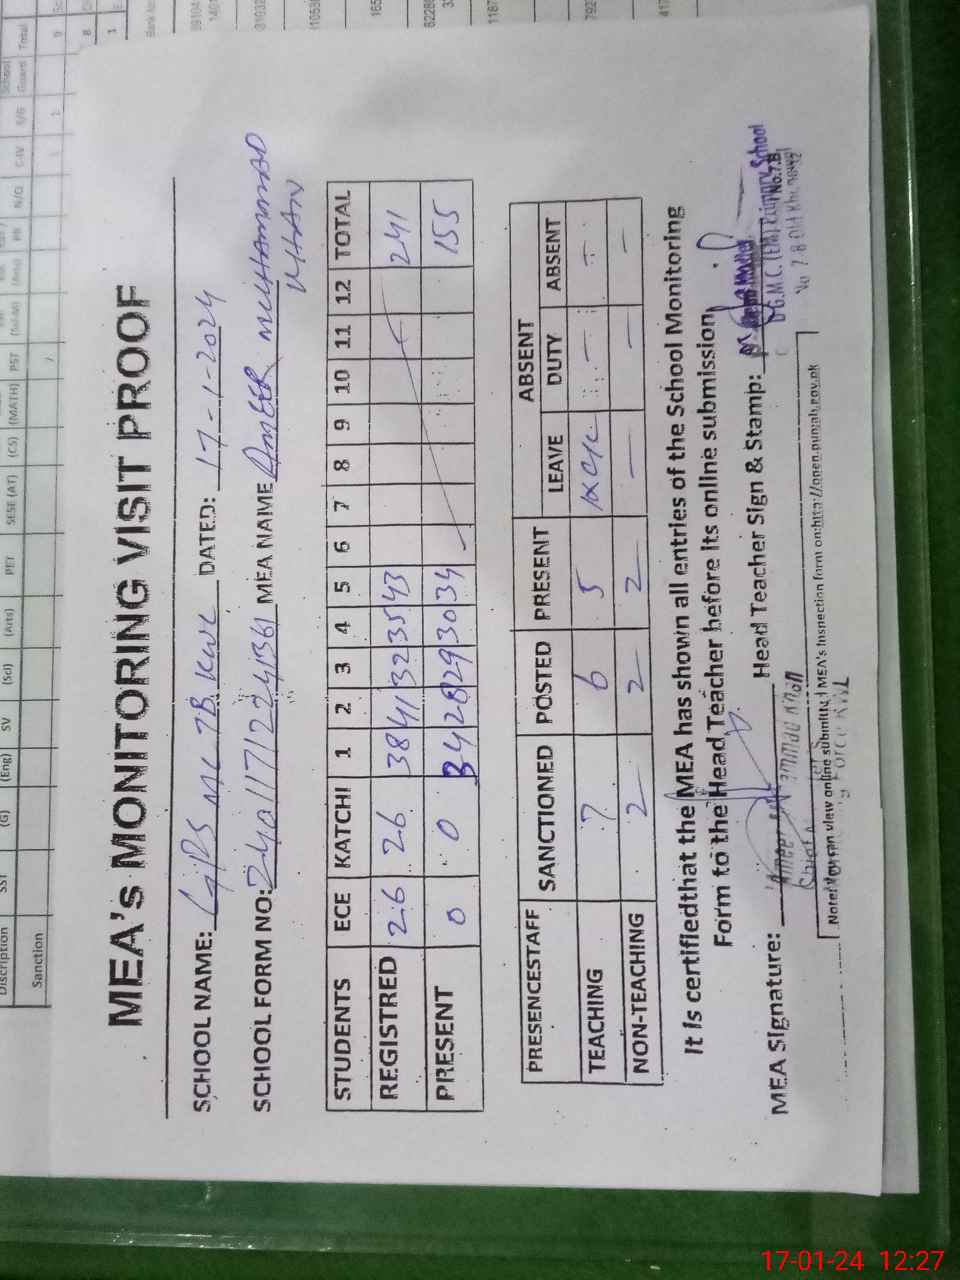 MEA's MONITORING VISIT PROOF
SCHOOL NAME: GMPS MC 7B KWL DATED: 17-1-2024
SCHOOL FORM NO: MEA NAME AMEER MUHAMMAD
KHAN
STUDENTS ECE KATCHI 1 2 3 4 5 6 7 8 9 10 11 12 TOTAL
REGISTRED 26 26 38 41 32 35 43 241
PRESENT 0 0 34 28 29 30 34 155
ABSENT
PRESENCESTAFF SANCTIONED POSTED PRESENT LEAVE DUTY ABSENT
TEACHING 7 6 5 - -
NON-TEACHING 2 2 2 - - -
It Is certifiedthat the MEA has shown all entries of the School Monitoring
Form to the Head Teacher before its online submission.
MEA Signature: Head Teacher Sign & Stamp:
G.M.C. (EM) Primary School
No.7.B
No 7 B Old Khanewal
Note: You can view online submitted MEA's Inspection form on:http://open.punjab.gov.pk
Force KWL
Discription SST (G) (Eng) SV (Sci) (Arts) PET SESE (AT) (CS) (MATH) PST N/Q C-IV Guard Total
Sanction
17-01-24 12:27